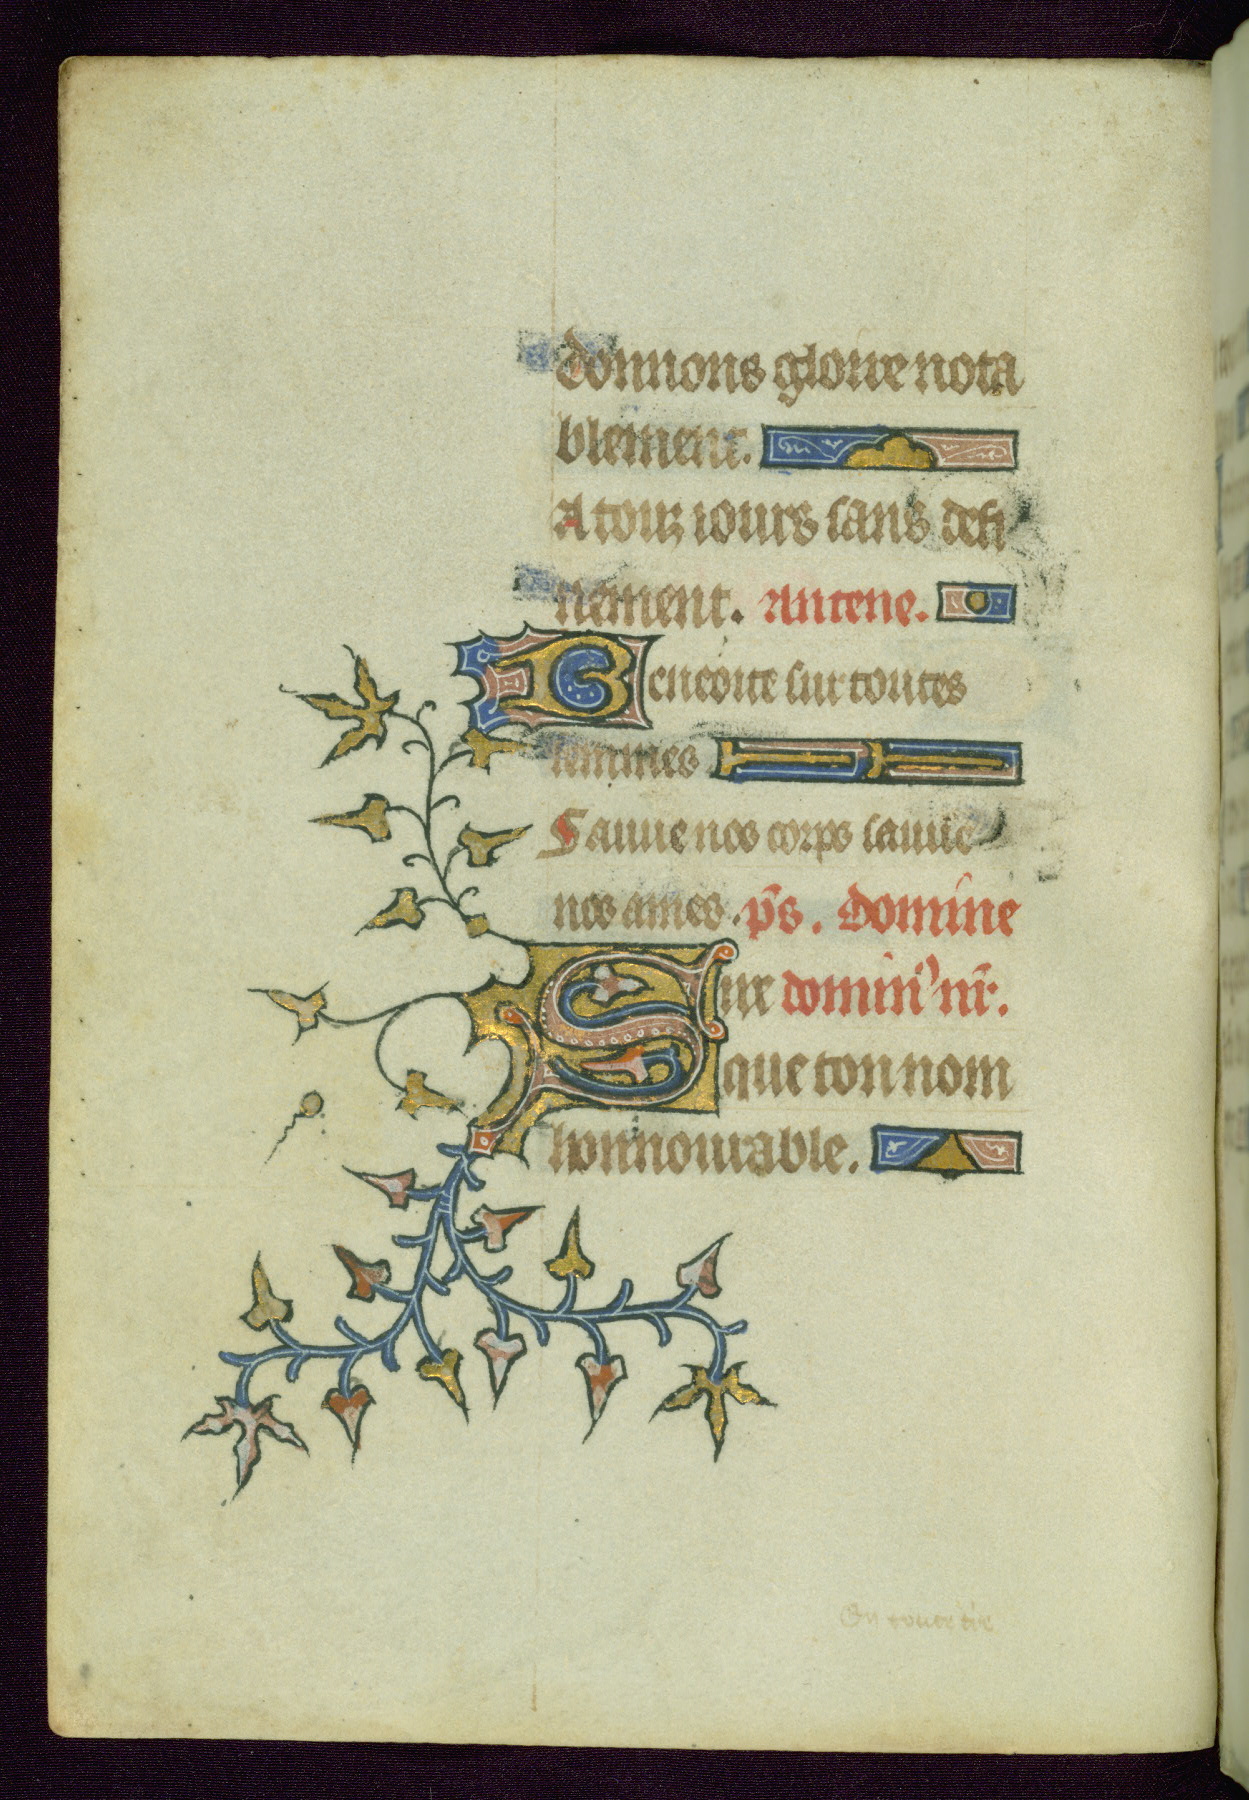 donnons gloire nota
blement.
A touz iours sans defi
nement. antene.
Beneoite sur toutes
femmes
Sauue nos corps sauue
nos ames. ps. domine
Sire domin' nr.
que ton nom
honnourable.
En toute tie